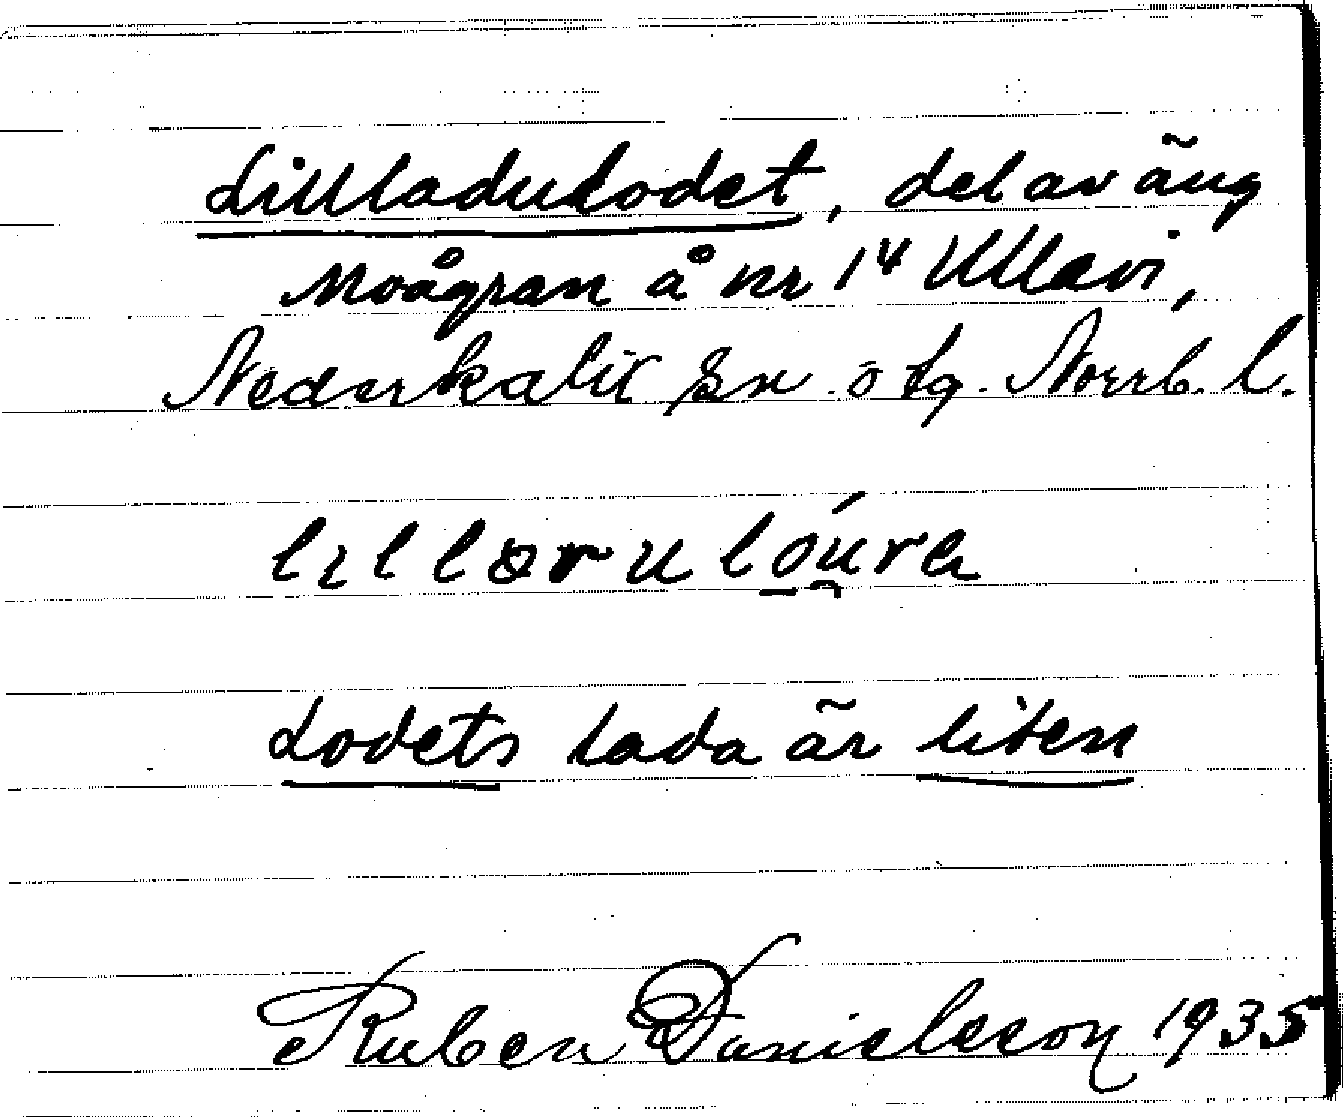 Lillladulodet, del av äng
Moågran å nr 14 Ullavi,
Nederkalix sn. o tg. Norrb. l.
lɩllaruló́u̯ra
Lodets lada är liten
Ruben Danielsson 1935